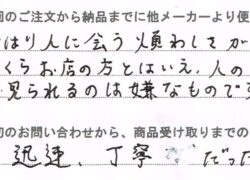 回のご注文から納品までに他メーカーより便
はり人に会う煩わしさが
くらお店の方とはいえ、人の
見られるのは嫌なものです
初のお問い合わせから、商品受け取りまでの
迅速、丁寧 だった